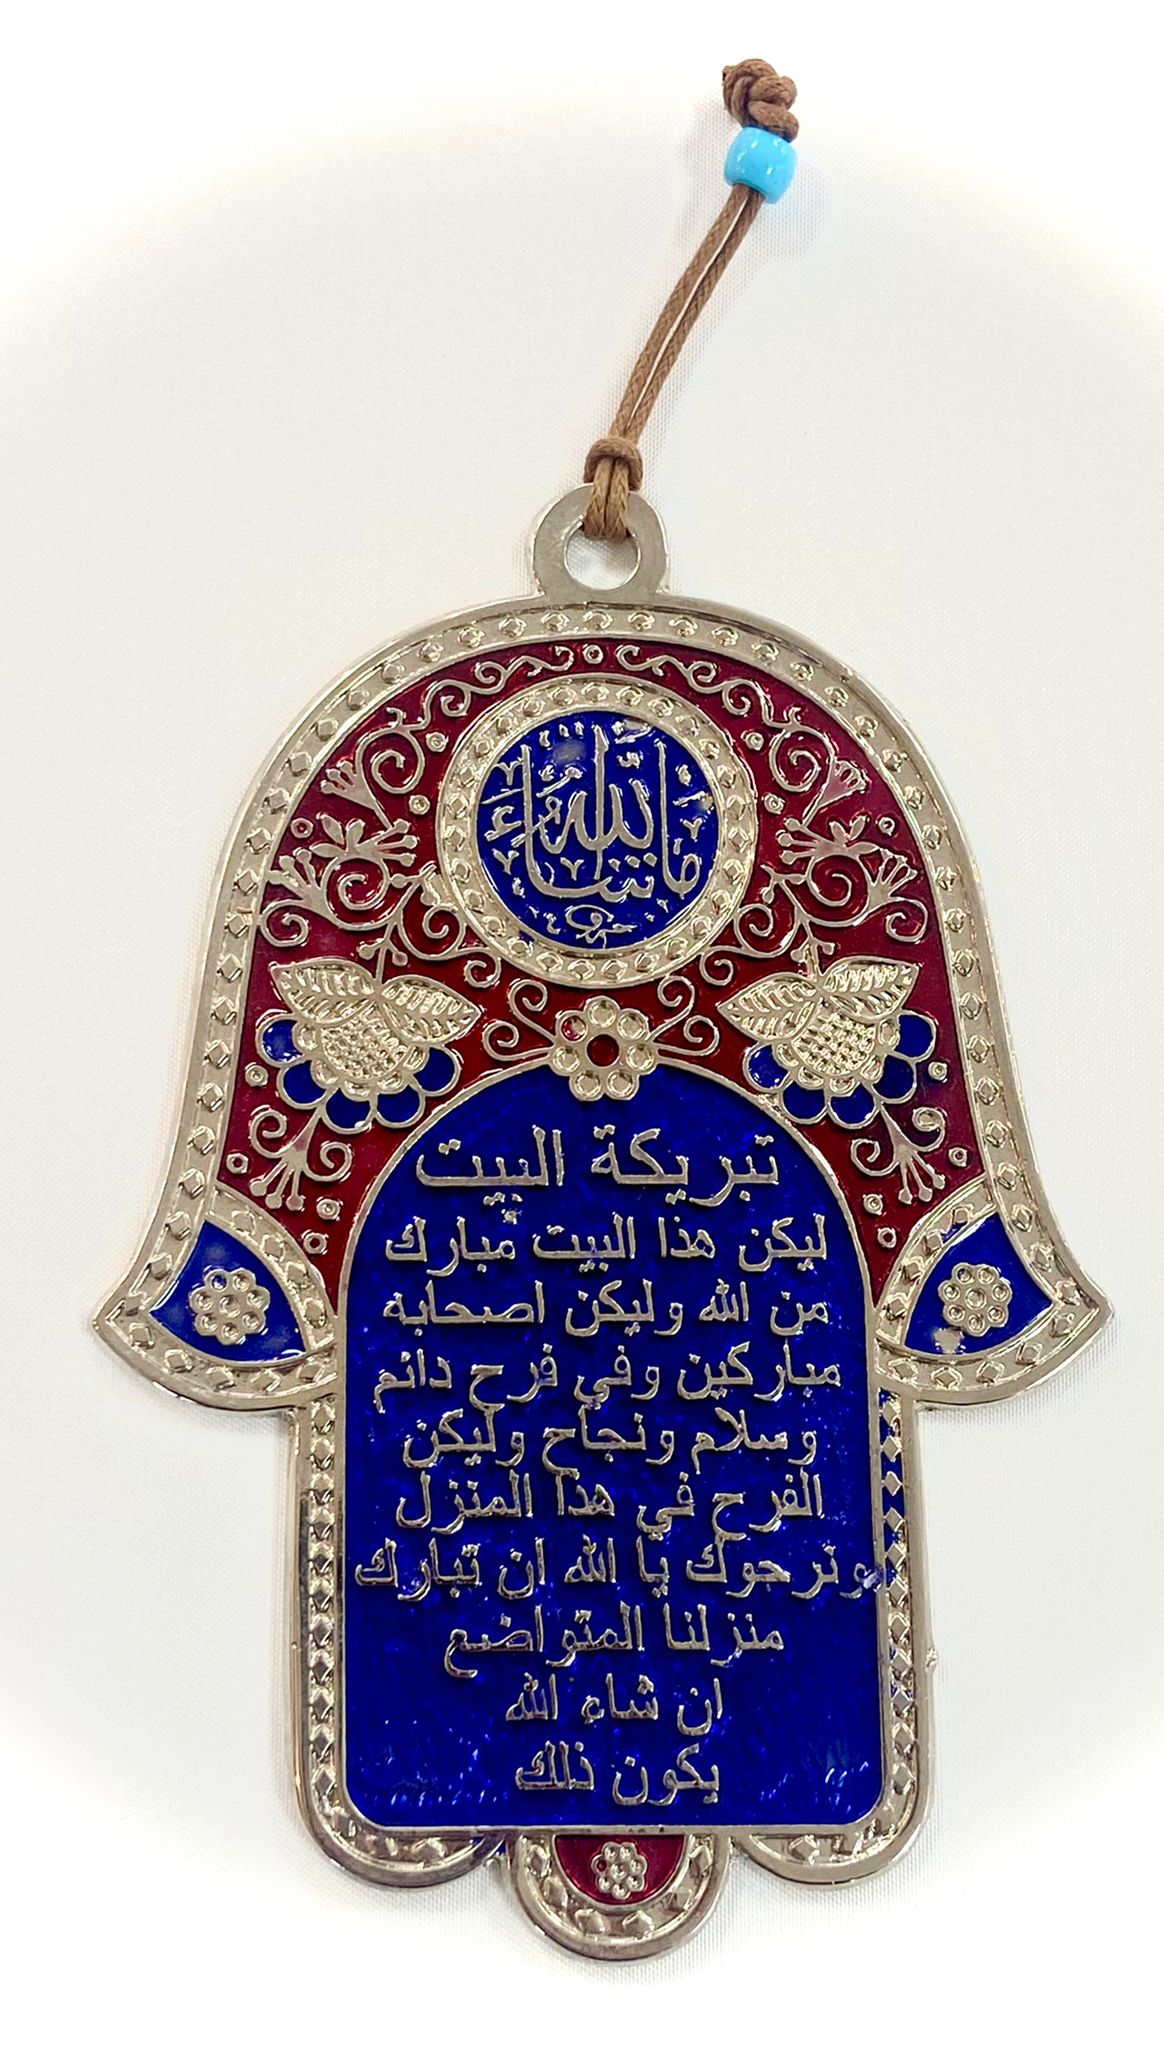 ما شاء الله
تبريكة البيت
ليكن هذا البيت مبارك
من الله وليكن اصحابه
مباركين وفي فرح دائم
وسلام ونجاح وليكن
الفرح في هذا المنزل
ونرجوك يا الله ان تبارك
منزلنا المتواضع
ان شاء الله
يكون ذلك